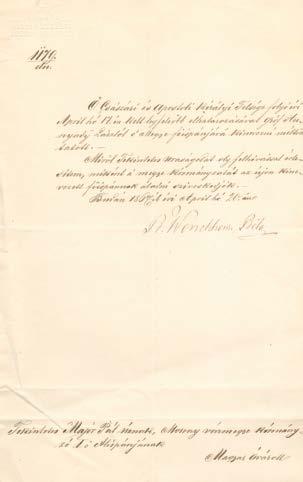 1179.
eln.
A Császári és Apostoli Királyi Felsége folyó évi
April hó 17.én kelt legfelsőbb elhatározásával Gróf
Zászlót a Megye főispánjává kinevezni méltóz-
tatott. —
Miről Tekintetes Uraságodat oly felhívással érte-
sítem, miként a megye kormányzatát az újon kine-
vezett főispánnak átadni szíveskedjék. —
Budán 1867.ik évi April hó 20.án
B. Wenckheim Béla
Tekintetes Major Pál Úrnak, Mosony vármegye kormány-
zó 1ső Alispánjának
Magyar Óvárott